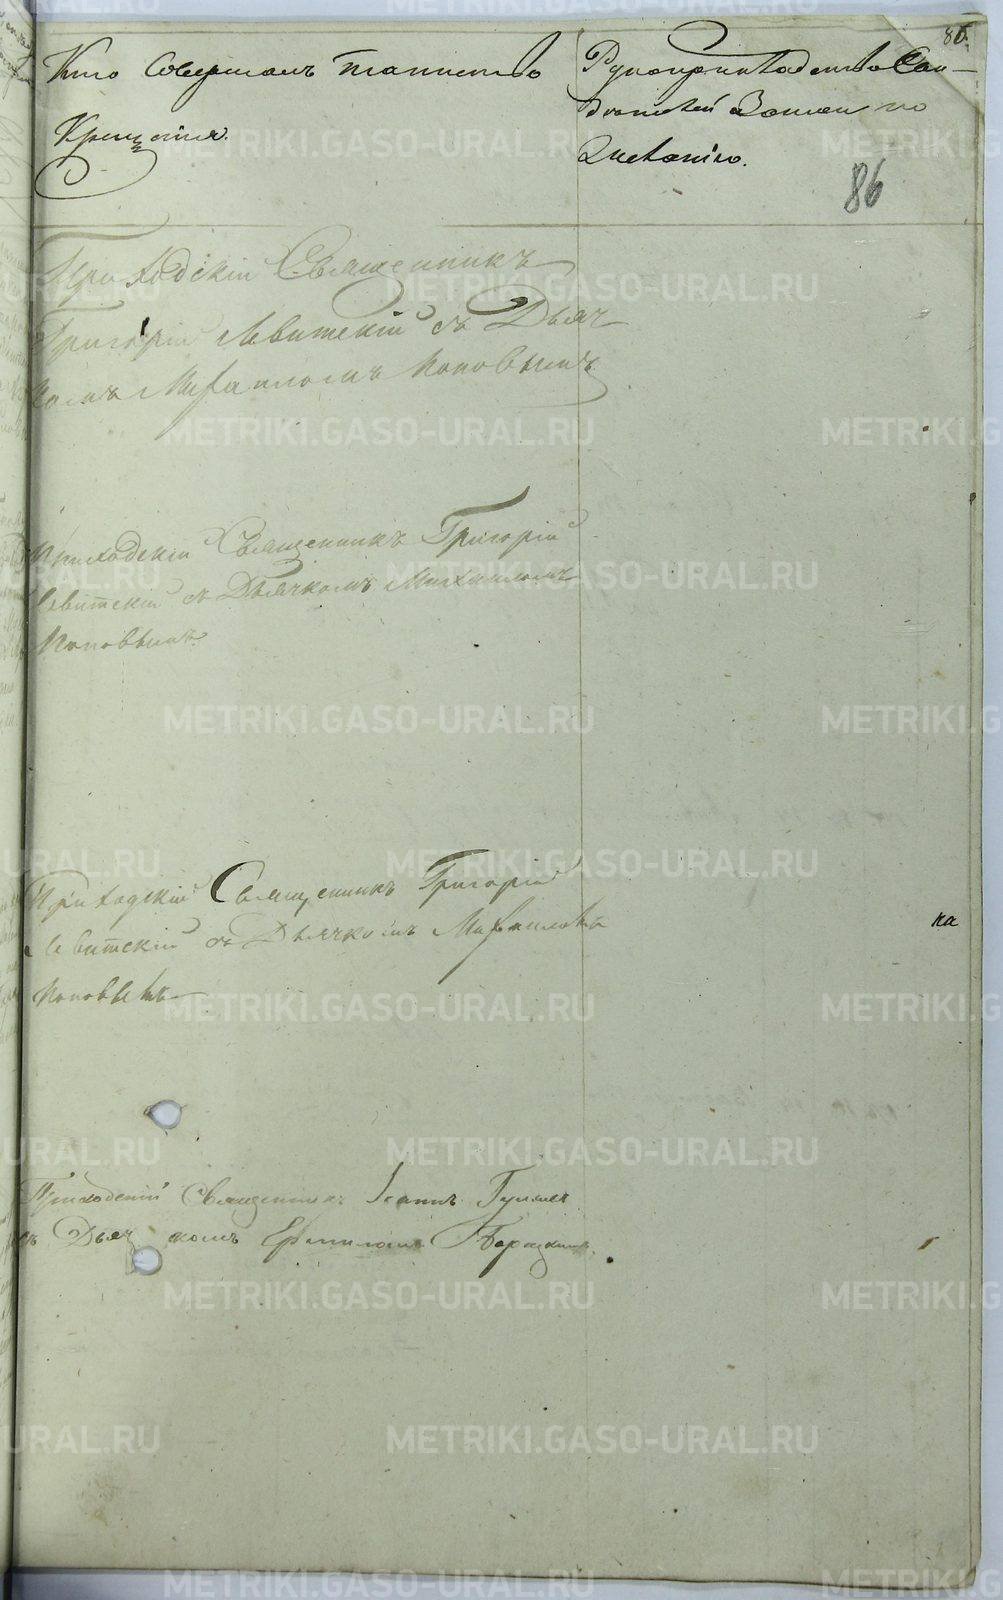 85.
Кто Совершалъ таинство
Крещенія.
Рукоприкладство Сви-
дѣтелей Записи по
желанію.
86
Приходскій Священникъ
Григорій Левитскій съ Дьяч-
комъ Михаиломъ Поповымъ
Приходскій Священникъ Григорій
Левитскій съ Дьячкомъ Михаиломъ
Поповымъ.
Приходскій Священникъ Григорій
Левитскій съ Дьячкомъ Михаиломъ
Поповымъ
на
Приходскій Священникъ Іоаннъ
съ Дьячкомъ
METRIKI.GASO-URAL.RU